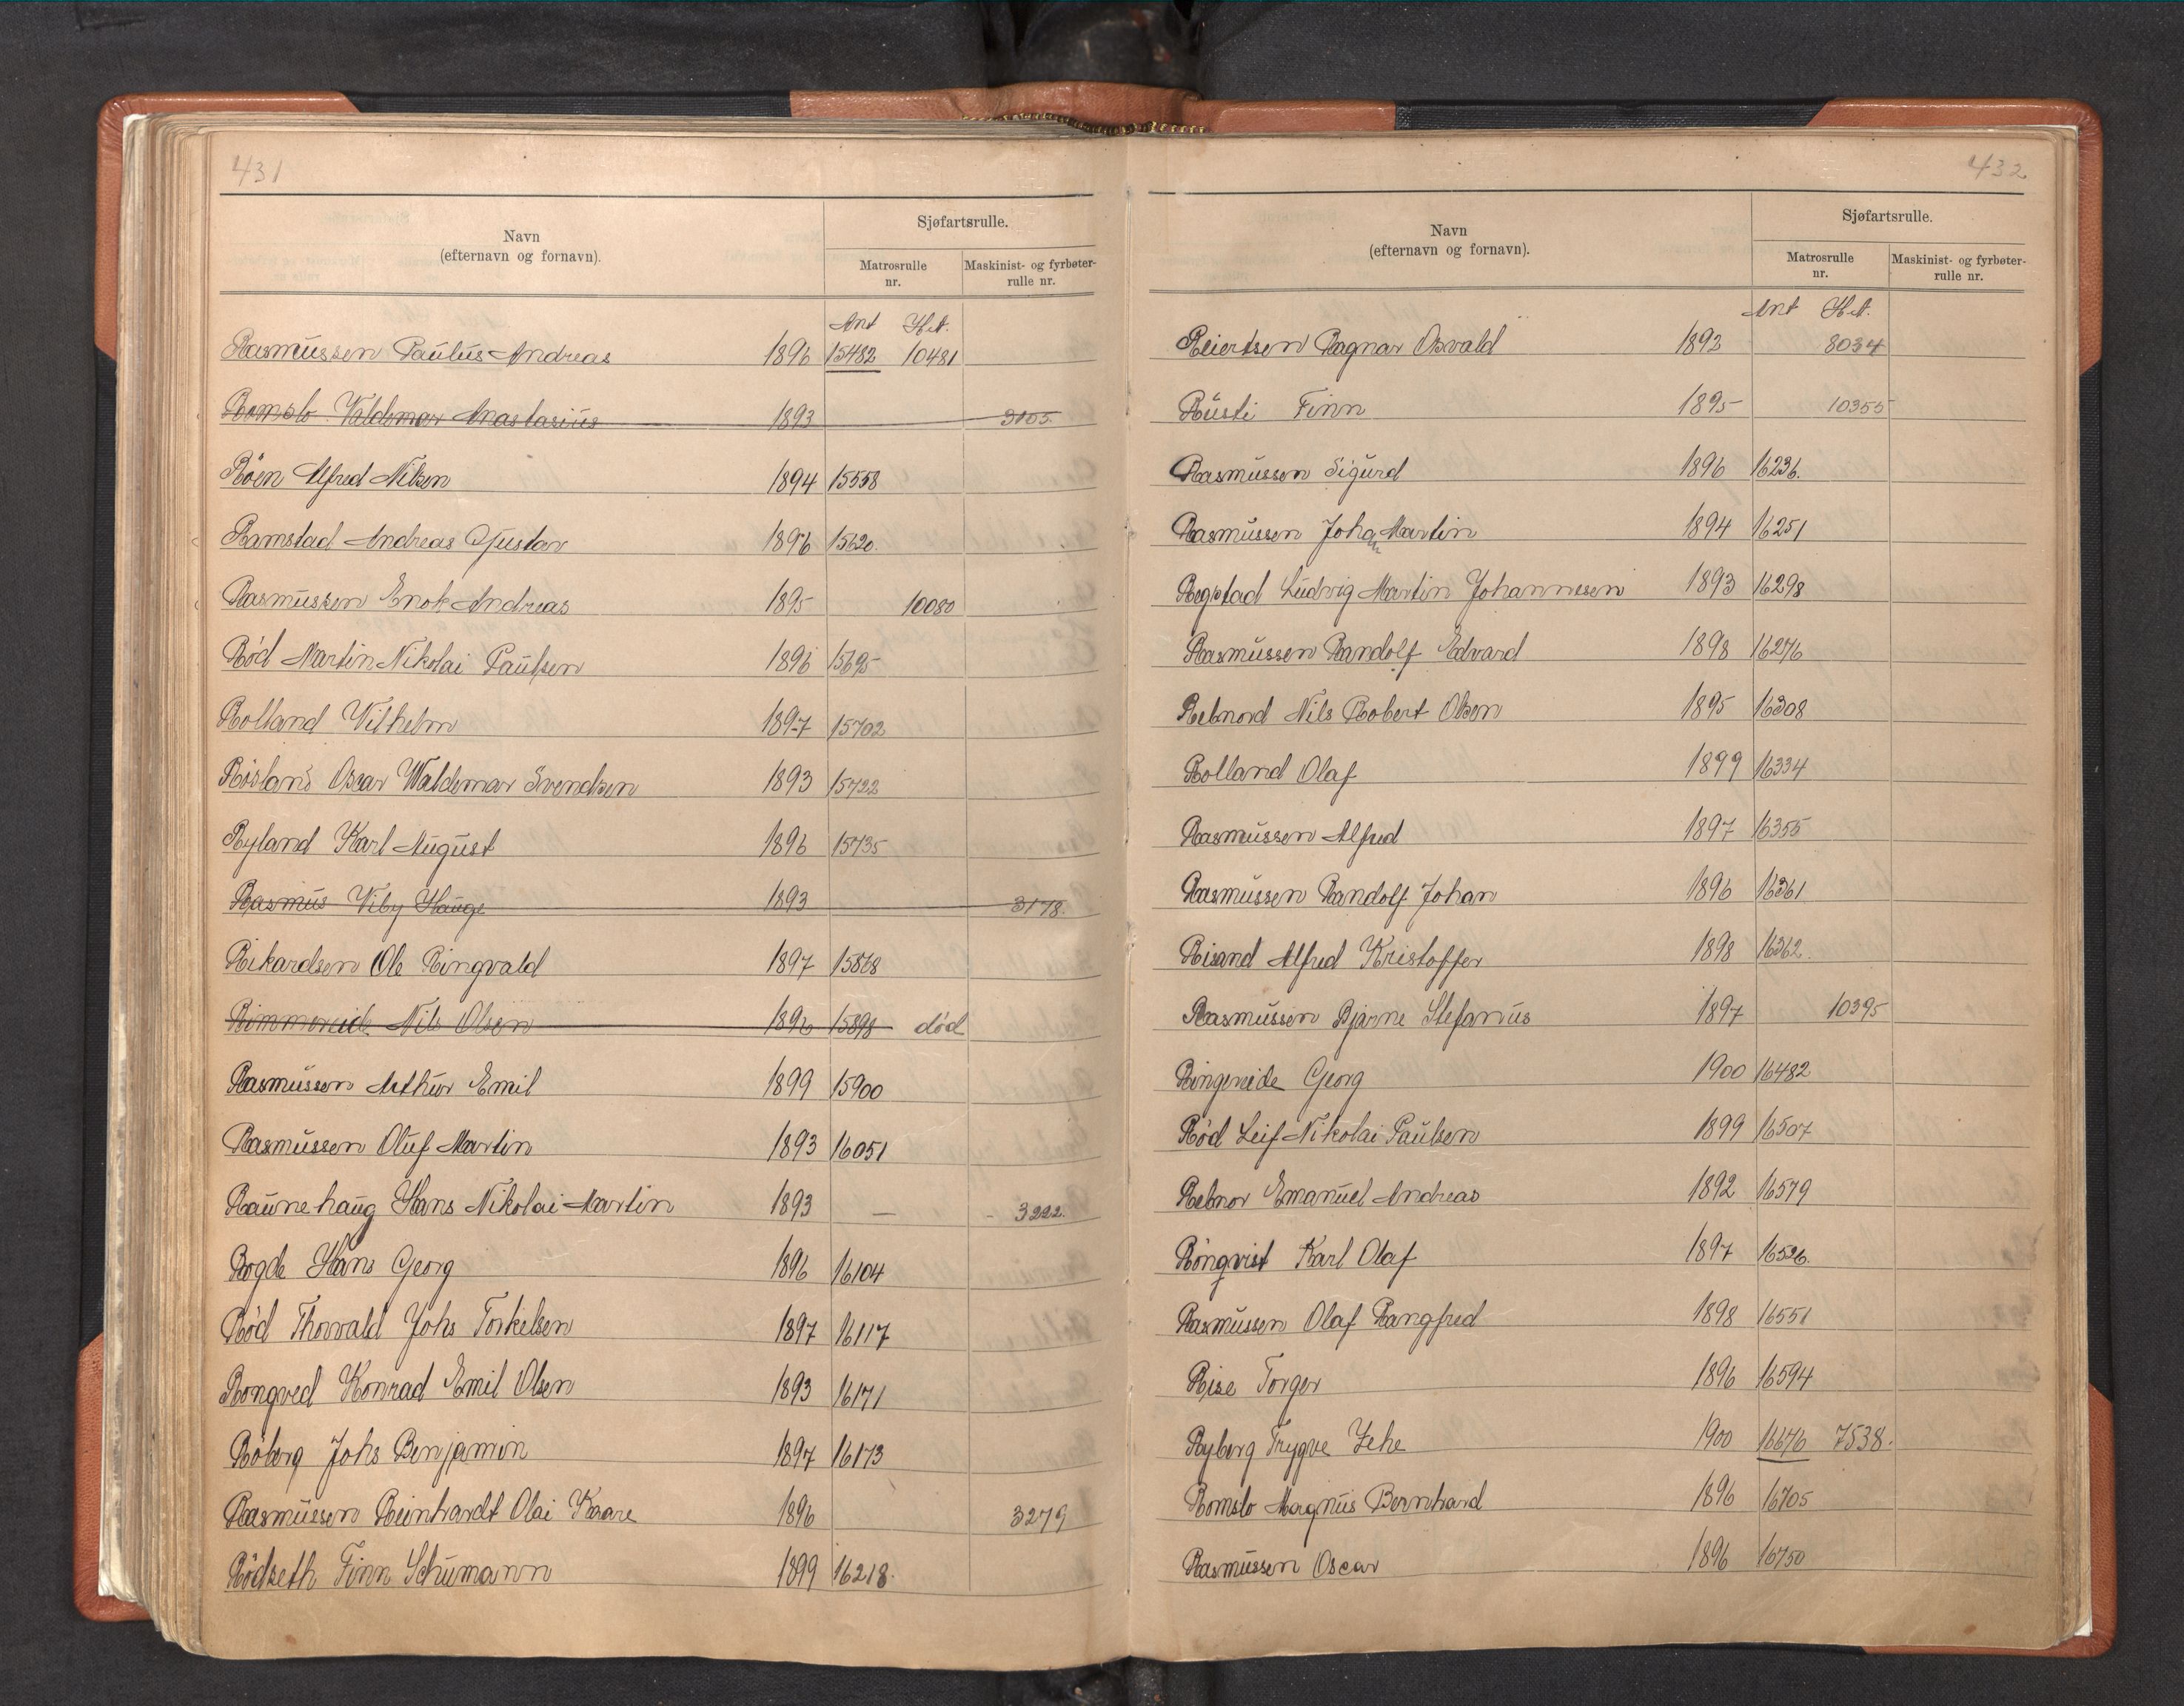 431
Navn
(efternavn og fornavn).
Sjøfartsrulle.
Matrosrulle nr.
Maskinist- og fyrbøter-rulle nr.
Ant Het.
Rasmussen Paulus Andreas 1896 15482 10481
Romslo Valdemar Anastasius 1893 3105.
Röen Alfred Nilsen 1894 15558
Ramstad Andreas Gustav 1896 15620.
Rasmussen Enok Andreas 1895 10080
Rød Martin Nikolai Paulsen 1896 15695
Rolland Vilhelm 1897 15702
Oscar Waldemar Svendsen 1893 15722
Ryland Karl August 1896 15735
Rasmus Viby Hauge 1893 3178.
Rikardsen Ole Ringvald 1897 15868
Rimmereid Nils Olsen 1896 15898 död
Rasmussen Arthur Emil 1899 15900
Rasmussen Oluf Martin 1893 16051
Raunehaug Hans Nikolai Martin 1893 — 3222.
Rogde Hans Georg 1896 16104
Rød Thorvald Johs Torkelsen 1897 16117
Rongved Konrad Emil Olsen 1893 16171
Röberg Johs Benjamin 1897 16173
Rasmussen Reinhardt Olai Kaare 1896 3279
Rödseth Finn Schumann 1899 16218.
432
Navn
(efternavn og fornavn).
Sjøfartsrulle.
Matrosrulle nr.
Maskinist- og fyrbøter-rulle nr.
Ant Het.
Reiertsen Ragnar Osvald 1892 8034
Rusti Finn 1895 10355
Rasmussen Sigurd 1896 16236.
Rasmussen Johan Martin 1894 16251
Rogstad Ludvig Martin Johannesen 1893 16298
Rasmussen Randolf Edvard 1898 16276
Rebnord Nils Robert Olsen 1895 16308
Rolland Olaf 1899 16334
Rasmussen Alfred 1897 16355
Rasmussen Randolf Johan 1896 16361
Risand Alfred Kristoffer 1898 16362.
Rasmussen Bjarne Stefanus 1897 10395
Ringereide Georg 1900 16482
Rød Leif Nikolai Paulsen 1899 16507
Rebnor Emanuel Andreas 1892 16579
Rönqvist Karl Olaf 1897 16526.
Rasmussen Olaf Rangfred 1898 16551
Rise Torger 1896 16594
Ryberg Trygve Jehe 1900 16676 7538.
Romslo Magnus Bernhard 1896 16705
Rasmussen Oscar 1896 16750